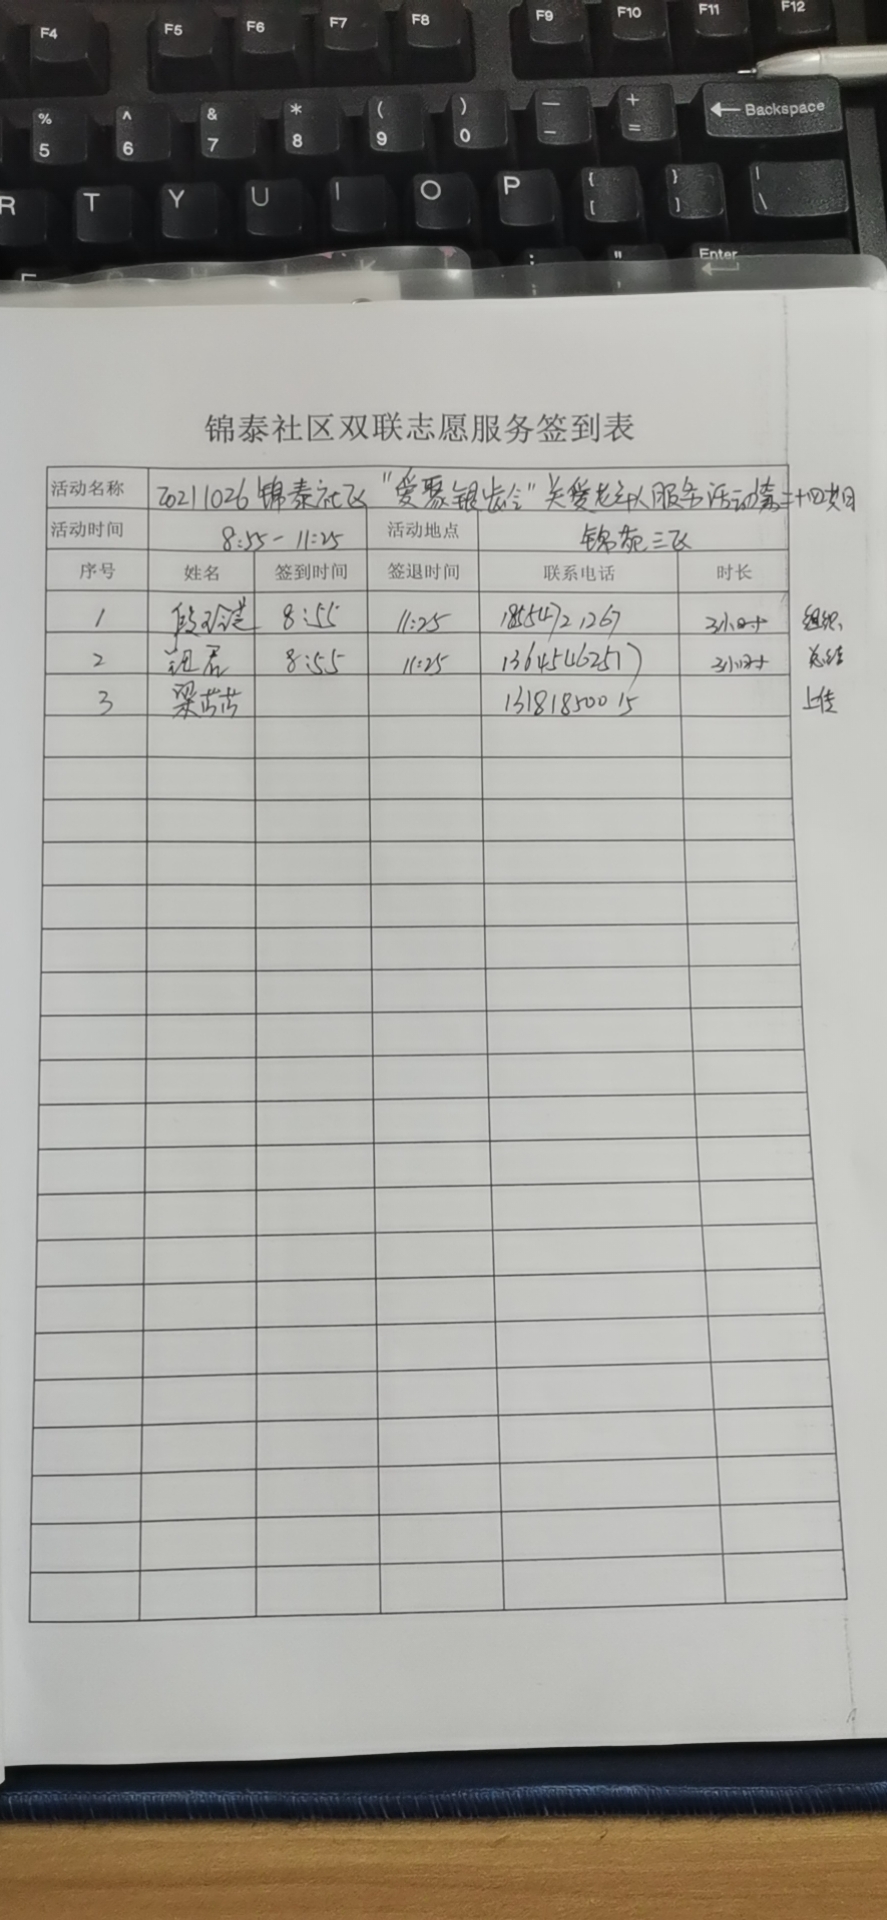 F4 F5 F6 F7 F8 F9 F10 F11 F12
% 5 ^ 6 & 7 * 8 ( 9 ) 0 — - + = Backspace
R T Y U I O P { [ } ] | \
: ; " ' Enter
锦泰社区双联志愿服务签到表
活动名称 20211026锦泰社区"爱聚银龄"关爱老年人服务活动第二十四次日
活动时间 8:55-11:25 活动地点 锦苑三区
序号 姓名 签到时间 签退时间 联系电话 时长
1 8:55 11:25 18554721267 3小时 组织
2 8:55 11:25 13645462517 3小时 总结
3 梁芸芸 13181850015 上传